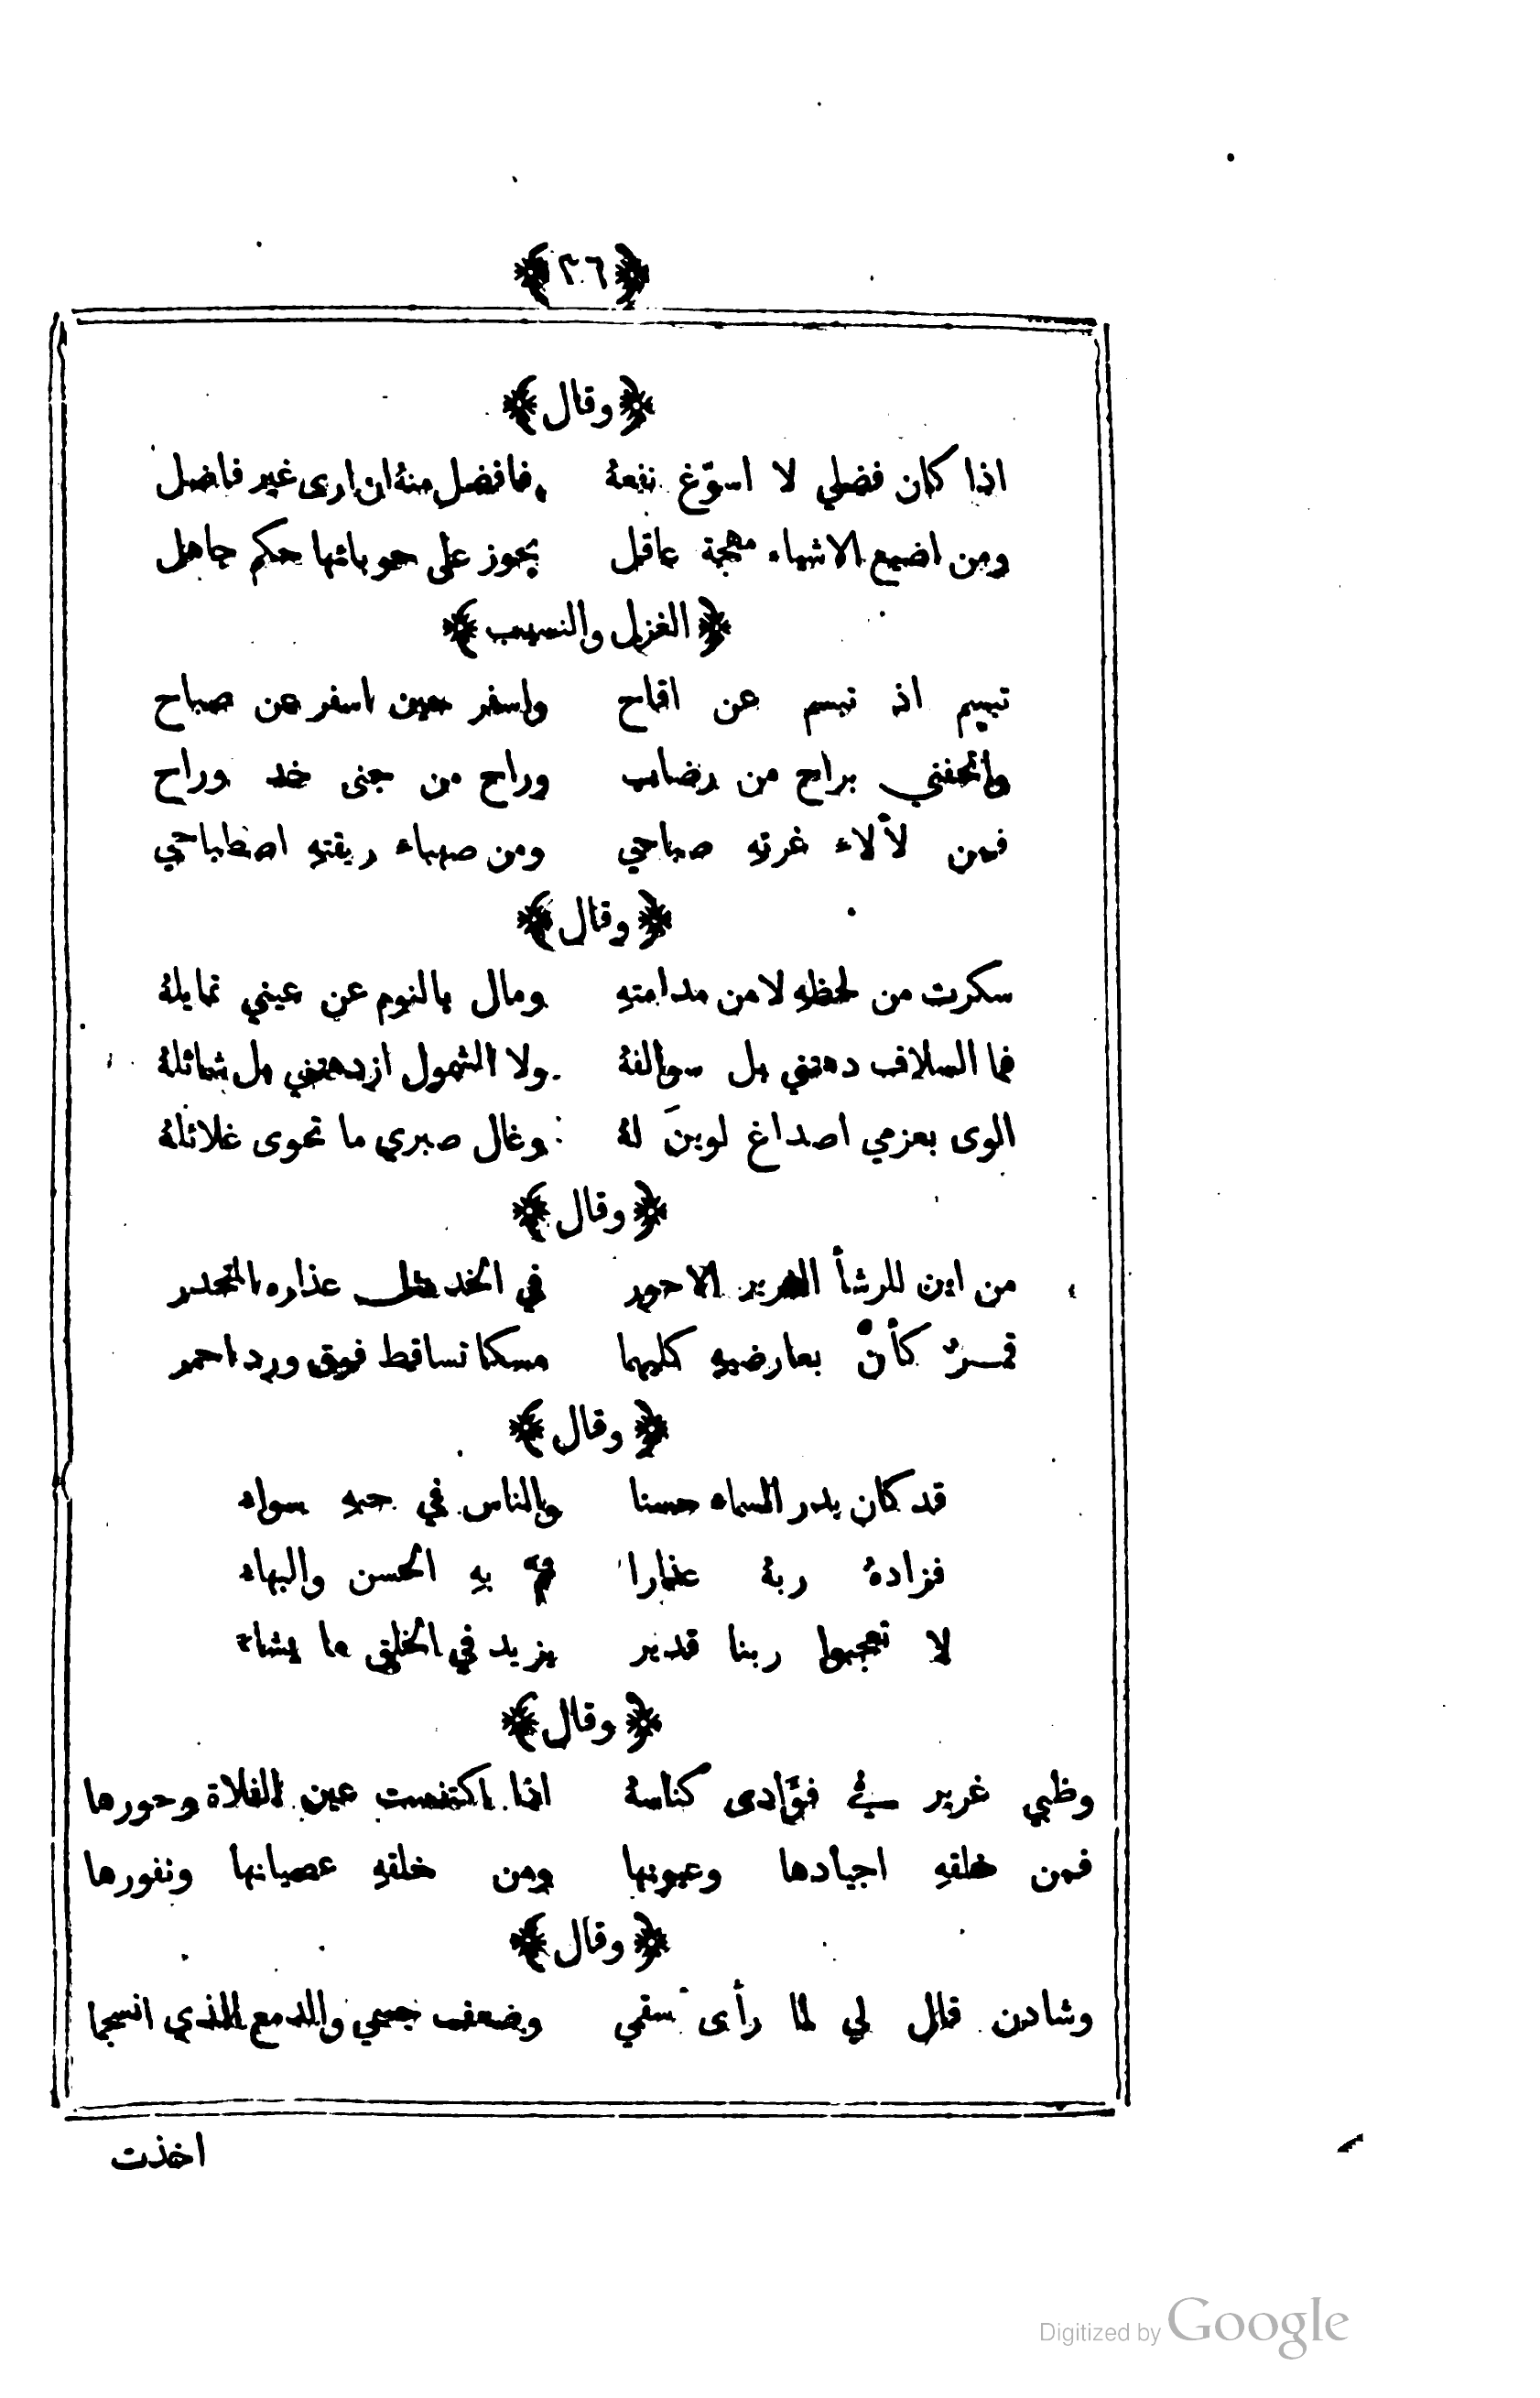 ﴿٢٦﴾
﴿وقال﴾
اذا كان فضلي لا اسوّغ نفعهُ فافضل منهُ ان ارى غير فاضل
ومن اضيع الاشياء مهجة عاقل يجوز على حوبائها حكم جاهل
﴿الغزل والنسيب﴾
تبسم اذ تبسم عن اقاح واسفر حين اسفر عن صباح
واتحفني براح من رضاب وراح من جنى خد وراح
فمن لألاء غرتهِ صباحي ومن صهباء ريقتهِ اصطباحي
﴿وقال﴾
سكرت من لحظهِ لا من مدامتهِ ومال بالنوم عن عيني تمايلهُ
فما السلاف دهتني بل سوالفهُ ولا الشمول ازدهتني بل شمائلهُ
الوى بعزمي اصداغ لوينَ لهُ وغال صبري ما تحوى غلائلهُ
﴿وقال﴾
من اين للرشأ الغرير الاحور في الخد مثل عذاره المتحدر
قمرٌ كأنّ بعارضيهِ كليهما مسكا تساقط فوق ورد احمر
﴿وقال﴾
قد كان بدر السماء حسنا والناس في حبهِ سواء
فزادهُ ربهُ عذارا تم بهِ الحسن والبهاء
لا تعجبوا ربنا قدير يزيد في الخلق ما يشاء
﴿وقال﴾
وظبي غرير في فؤادى كناسهُ اذا اكتنست عين الفلاة وحورها
فمن خلقهِ اجيادها وعيونها ومن خلقهِ عصيانها ونفورها
﴿وقال﴾
وشادن قال لي لما رأى سقمي وضعف جسمي والدمع الذي انسجما
اخذت
Digitized by Google